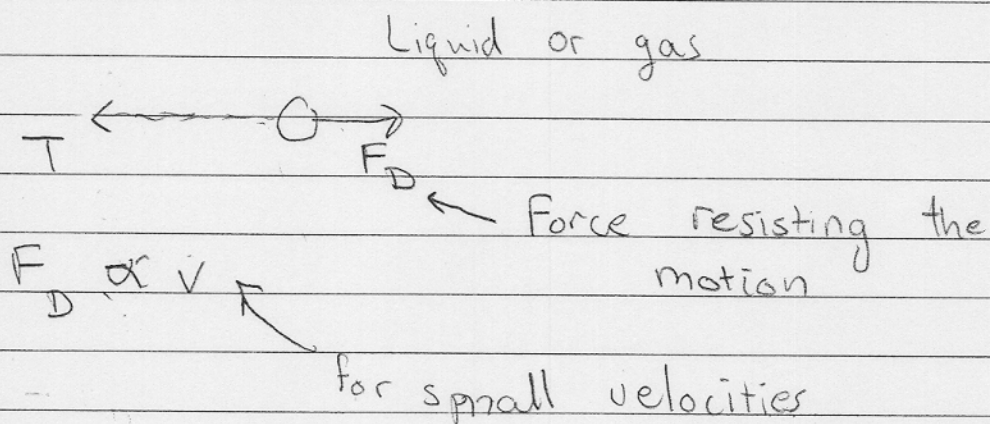 Liquid or gas
T
F_D
Force resisting the
motion
F_D ∝ v
for small velocities